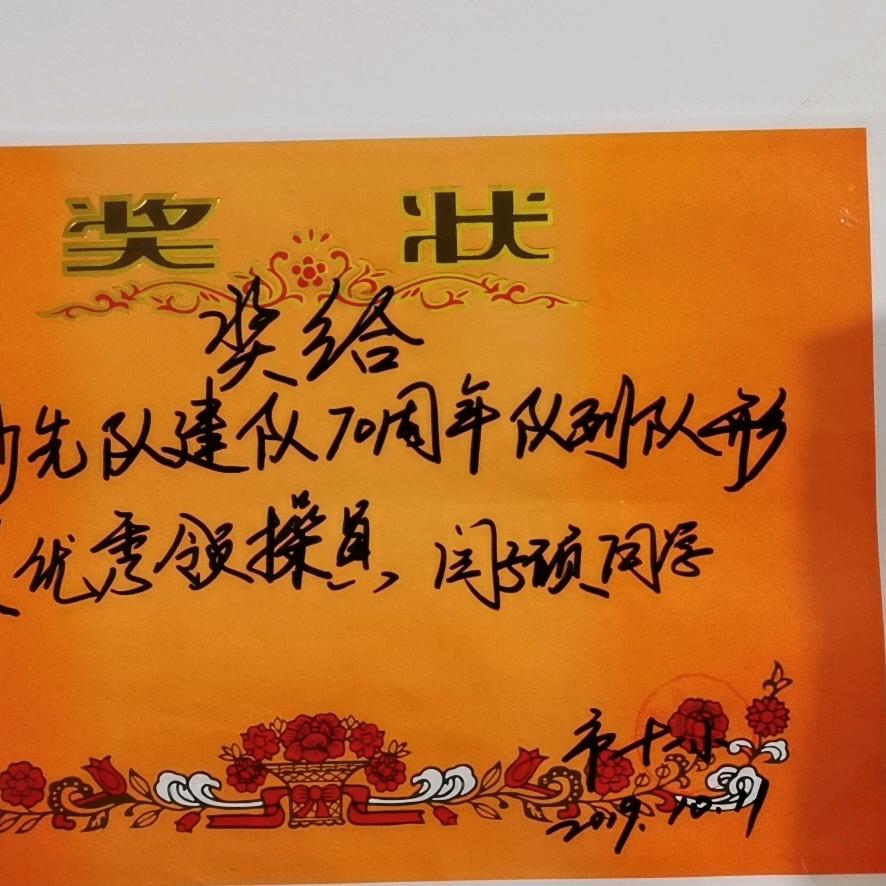 奖状
奖给
少先队建队70周年队列队形
优秀领操员,闫子硕同学
市十小
2019.10.11